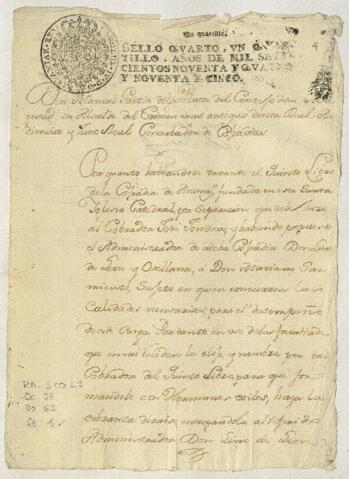 Un quartillo.
SELLO QVARTO, VN QVAR-
TILLO, AÑOS DE MIL SETE-
CIENTOS NOVENTA Y QVATRO
Y NOVENTA Y CINCO.
Don Manuel Garcia de la Plata del Consejo de su
su Alcalde del Crimen mas antiguo de esta Real Au-
diencia, y Juez Real Conservador de Cofradias
Por quanto hallandose vacante el Quinto Libro
de la Cofradia de fundada en esta Santa
Iglesia Catedral, por separacion que se hizo
al Cobrador José y habiendo propuesto
el Administrador de dicha Cofradia Don Lino
de Leon y Orellana, á Don Mariano Sar-
miento, Sugeto en quien concurren las
Calidades necesarias, para el desempeño
de este Cargo. Por tanto en uso de las facultades
que en mi residen lo elijo, y nombro por tal
Cobrador del Quinto Libro, para que for-
mandolo con Hermanos utiles, haga la
cobranza diaria, entregandola al
Administrador Don Lino de Leon